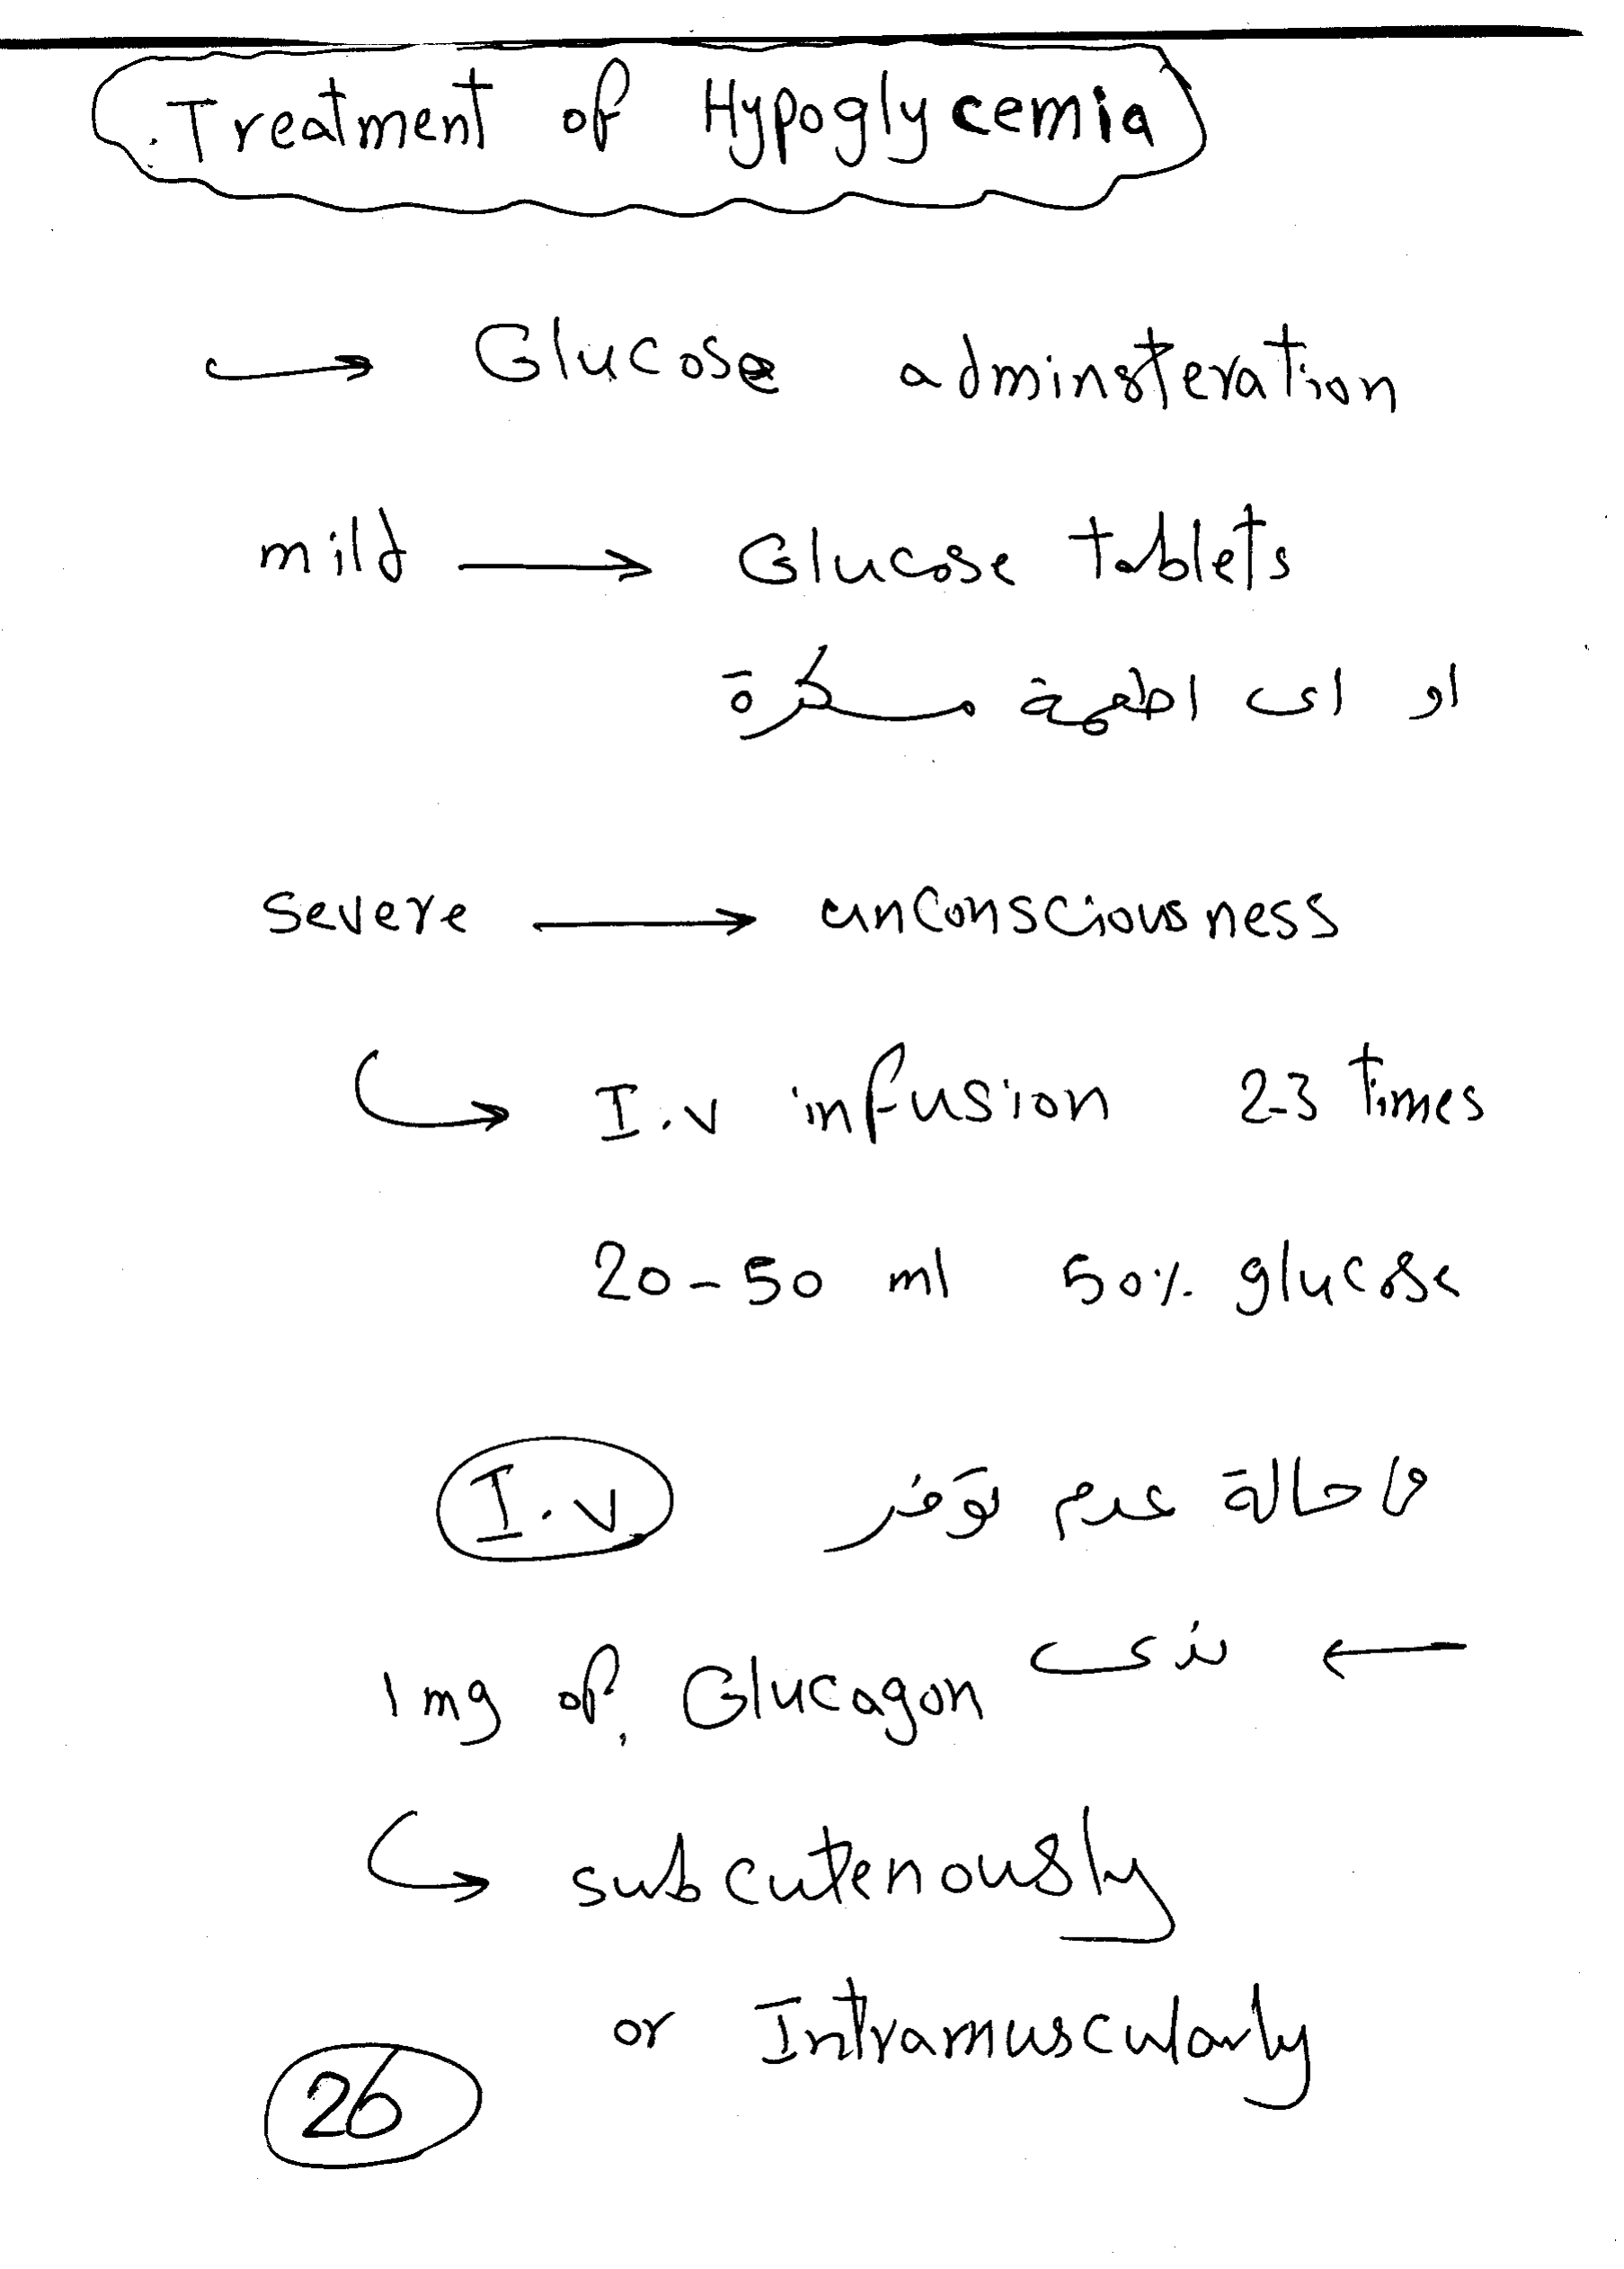 Treatment of Hypoglycemia
↪ Glucose adminsteration
mild → Glucose tablets
او اى اطعمة مسكرة
severe → unconsciousness
↪ I.v infusion 2-3 times
20-50 ml 50% glucose
فى حالة عدم توفر I.v
← ندى 1 mg of Glucagon
↪ subcutenously
or Intramuscularly
26